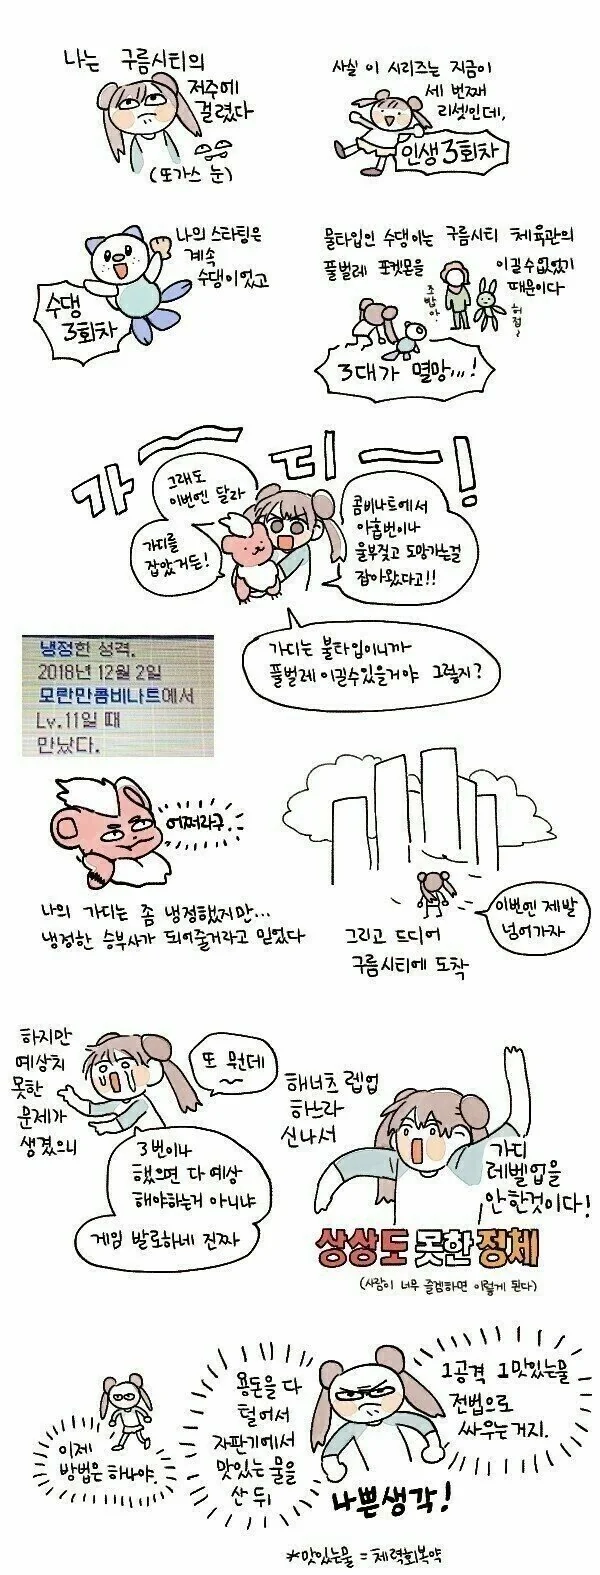 나는 구름시티의
저주에
걸렸다
(또가스 눈)
사실 이 시리즈는 지금이
세 번째
리셋인데,
인생 3회차
나의 스타팅은
계속
수댕이었고
수댕
3회차
물타입인 수댕이는 구름시티 체육관의
풀벌레 포켓몬을 이길수없었기
때문이다
초밥아
허접~
3대가 멸망,,,!
가ㅡ디ㅡ!
그래도
이번엔 달라
가디를
잡았거든!
콤비나트에서
아홉번이나
울부짖고 도망가는걸
잡아왔다고!!
가디는 불타입이니까
풀벌레 이길수있을거야 그렇지?
냉정한 성격.
2018년 12월 2일
모란만콤비나트에서
Lv.11일 때
만났다.
어쩌라구
나의 가디는 좀 냉정했지만...
냉정한 승부사가 되어줄거라고 믿었다
이번엔 제발
넘어가자
그리고 드디어
구름시티에 도착
하지만
예상치
못한
문제가
생겼으니
또 뭔데
3번이나
했으면 다 예상
해야하는거 아니냐
게임 발로하네 진짜
해너츠 렙업
하느라
신나서
가디
레벨업을
안한것이다!
상상도 못한 정체
(사람이 너무 즐겜하면 이렇게 된다)
이제
방법은 하나야.
용돈을 다
털어서
자판기에서
맛있는 물을
산 뒤
1공격 1맛있는물
전법으로
싸우는거지.
나쁜생각!
*맛있는물 = 체력회복약